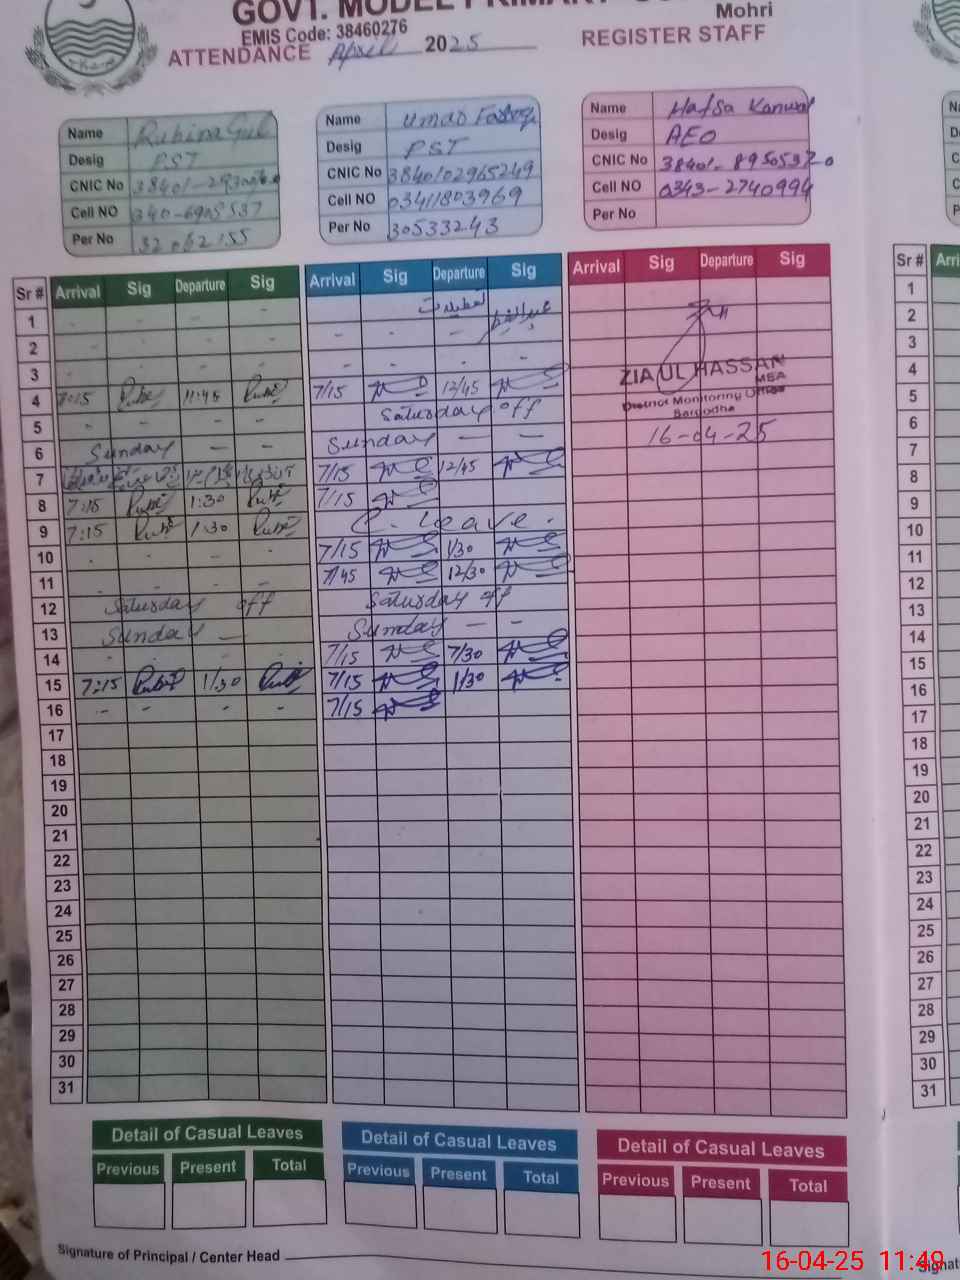 GOVT. MODEL PRIMARY
Mohri
EMIS Code: 38460276
ATTENDANCE April 2025 REGISTER STAFF
Name Rubina Gul
Desig PST
CNIC No
Cell NO
Per No 32062155
Name Umar Farooq
Desig PST
CNIC No 3840102965249
Cell NO 03411803969
Per No 30533243
Name Hafsa Kanwal
Desig AEO
CNIC No 38401-8950537-0
Cell NO 0343-2740994
Per No
Sr # Arrival Sig Departure Sig Arrival Sig Departure Sig Arrival Sig Departure Sig
1 - - - - تعطیلات عیدالفطر
2 - - - - - - - -
3 - - - - - - - -
4 7:15 11:45 7/15 12/45
5 - - - - Saturday off
6 Sunday — — Sunday — —
7 7/15 12/45
8 7:15 1:30 7/15
9 7:15 1:30 C. Leave.
10 - - - - 7/15 1/30
11 - - - - 7/45 12/30
12 Saturday off Saturday off
13 Sunday — Sunday — —
14 - - - - 7/15 7/30
15 7:15 1/30 7/15 1/30
16 - - - - 7/15
17
18
19
20
21
22
23
24
25
26
27
28
29
30
31
ZIA UL HASSAN
MEA
District Monitoring Officer
Sargodha
16-04-25
Detail of Casual Leaves Detail of Casual Leaves Detail of Casual Leaves
Previous Present Total Previous Present Total Previous Present Total
Signature of Principal / Center Head
Sr #
1
2
3
4
5
6
7
8
9
10
11
12
13
14
15
16
17
18
19
20
21
22
23
24
25
26
27
28
29
30
31
16-04-25 11:49